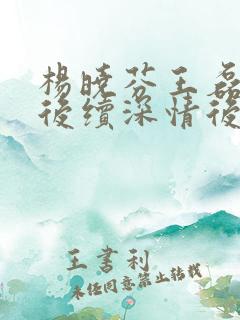 楊曉芬王磊
後續深情後
王書利
未任同意禁止转载